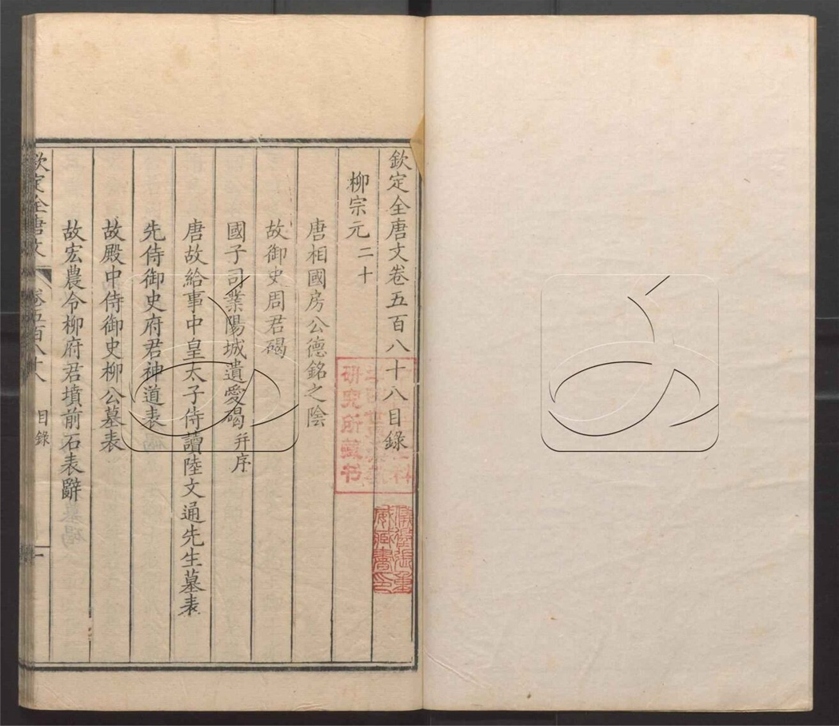 欽定全唐文卷五百八十八目錄
柳宗元二十
唐相國房公德銘之陰
故御史周君碣
國子司業陽城遺愛碣并序
唐故給事中皇太子侍讀陸文通先生墓表
先侍御史府君神道表
故殿中侍御史柳公墓表
故宏農令柳府君墳前石表辭
欽定全唐文 卷五百八十八 目錄 一
研究所藏书